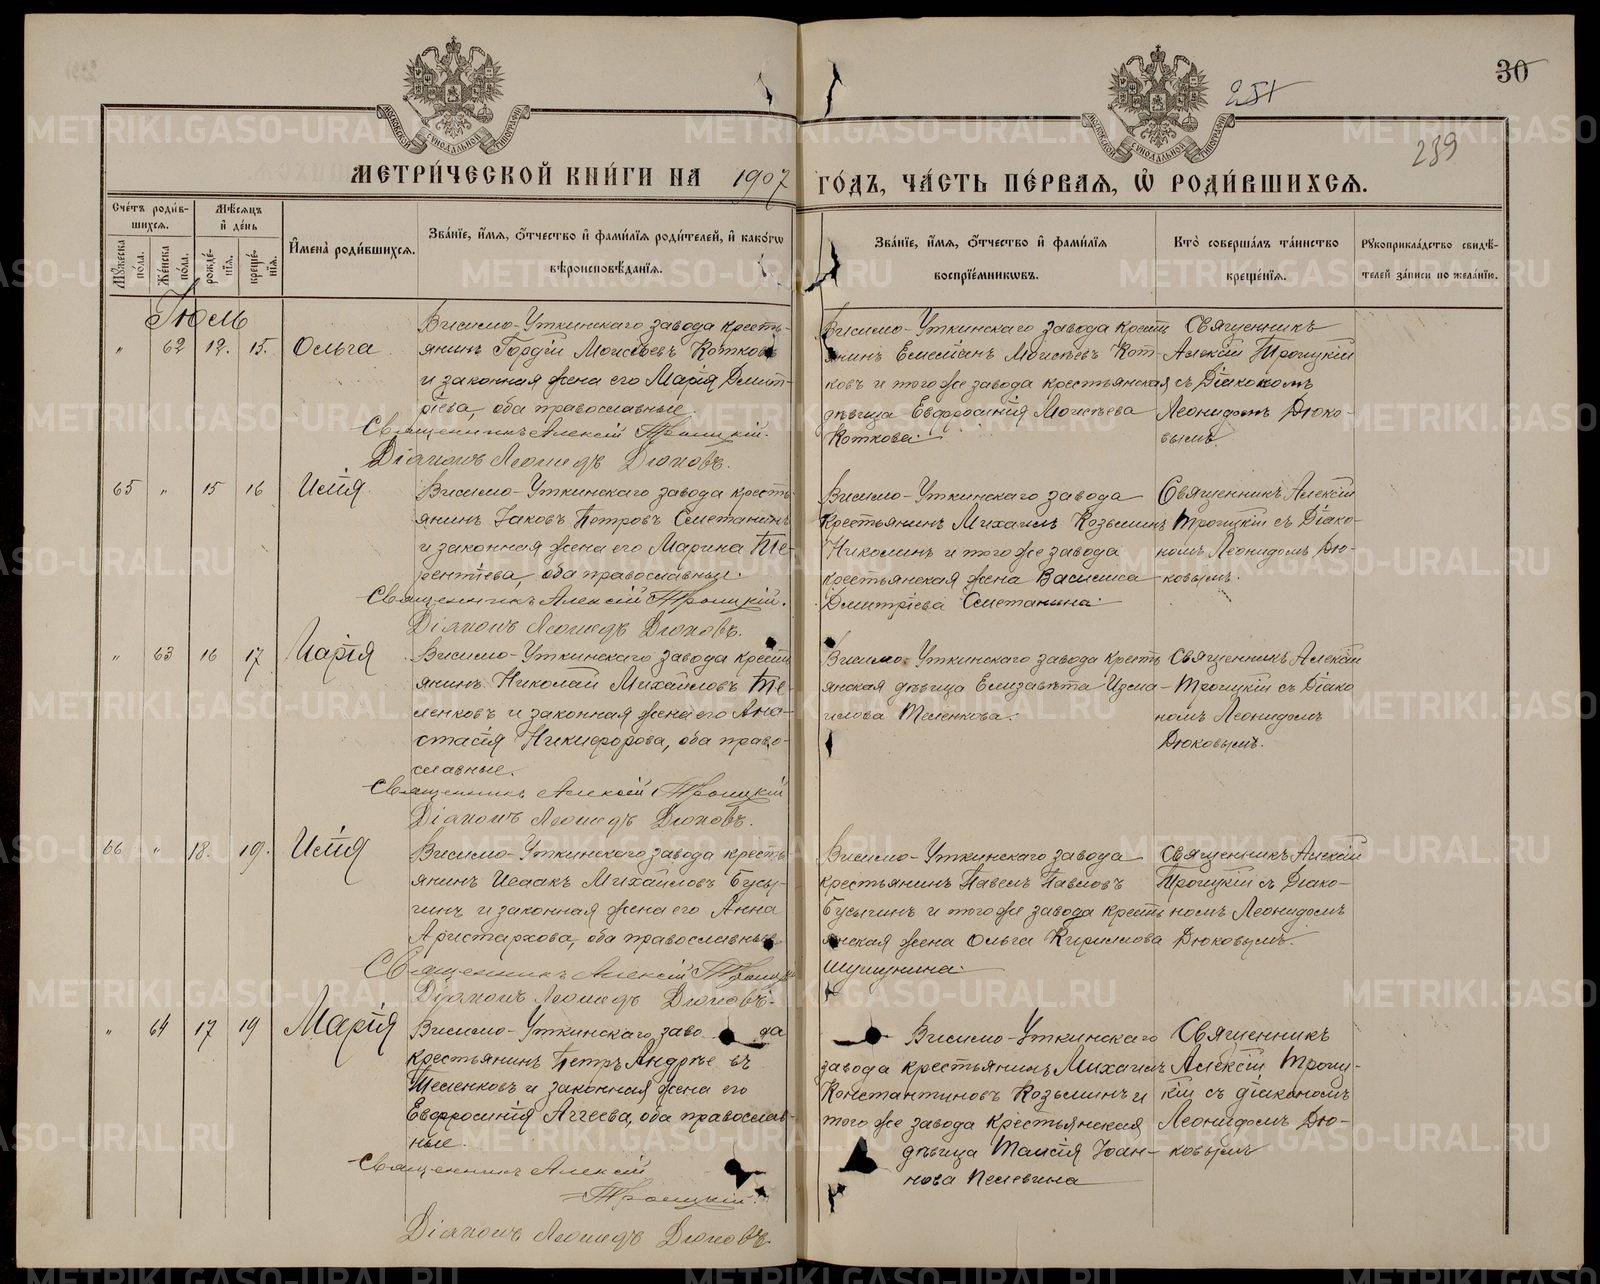 30
251
289
МЕТРИ́ЧЕСКОЙ КНИ́ГИ НА 1907 ГО́ДЪ, ЧА́СТЬ ПЕ́РВАЯ, Ѡ РОДИ́ВШИХСЯ.
Сче́тъ роди́в-
шихся.
Мꙋ́жеска по́ла.
Же́нска по́ла.
Мѣ́сяцъ
и де́нь
рожде́нїя.
креще́нїя.
И҆мена̀ роди́вшихся.
Зва́нїе, и҆́мя, ѻ҆́тчество и҆ фами́лїя роди́телей, и҆ како́гѡ
вѣроисповѣ́данїя.
Зва́нїе, и҆́мя, ѻ҆́тчество и҆ фами́лїя
воспрїе́мникѡвъ.
Кто̀ соверша́лъ та́инство
креще́нїя.
Рꙋкоприкла́дство свидѣ́-
телей за́писи по жела́нїю.
Іюль
„ 62 12. 15. Ольга
Висимо-Уткинскаго завода кресть-
янинъ Гордій Моисѣевъ Котковъ
и законная жена его Марія Дмит-
ріева, оба православные.
Священникъ Алексій Троицкій.
Діаконъ Леонидъ Дюковъ.
Висимо-Уткинскаго завода кресть
янинъ Емеліанъ Моисѣевъ Кот-
ковъ и того же завода крестьянская
дѣвица Евфросинія Моисѣева
Коткова.
Священникъ
Алексій Троицкій
съ Діакономъ
Леонидомъ Дюко-
вымъ
65 „ 15 16 Илія
Висимо-Уткинскаго завода кресть
янинъ Іаковъ Петровъ Сметанинъ
и законная жена его Марина Те-
рентіева, оба православные.
Священникъ Алексій Троицкій.
Діаконъ Леонидъ Дюковъ.
Висимо-Уткинскаго завода
крестьянинъ Михаилъ Козьминъ
Николинъ и того же завода
крестьянская жена Василиса
Дмитріева Сметанина.
Священникъ Алексій
Троицкій съ Діако-
номъ Леонидомъ Дю-
ковымъ.
„ 63 16 17 Марія
Висимо-Уткинскаго завода кресть
янинъ Николай Михайловъ Те-
ленковъ и законная жена его Ана-
стасія Никифорова, оба право-
славные.
Священникъ Алексій Троицкій
Діаконъ Леонидъ Дюковъ.
Висимо-Уткинскаго завода кресть
янская дѣвица Елизавѣта Изма-
илова Теленкова.
Священникъ Алексій
Троицкій съ Діако
номъ Леонидомъ
Дюковымъ.
66 „ 18. 19. Илія
Висимо-Уткинскаго завода кресть
янинъ Исаакъ Михайловъ Бусы-
гинъ и законная жена его Анна
Аристархова, оба православные
Священникъ Алексій Троицкій
Діаконъ Леонидъ Дюковъ.
Висимо-Уткинскаго завода
крестьянинъ Павелъ Павловъ
Бусыгинъ и того же завода кресть
янская жена Ольга Кириллова
Шушунина.
Священникъ Алексій
Троицкій съ Діако-
номъ Леонидомъ
Дюковымъ.
„ 64 17 19 Марія
Висимо-Уткинскаго заво да
крестьянинъ Петръ Андрѣе въ
Теленковъ и законная жена его
Евфросинія Аггеева, оба православ-
ные.
Священникъ Алексій
Троицкій.
Діаконъ Леонидъ Дюковъ.
Висимо-Уткинскаго
завода крестьянинъ Михаилъ
Константиновъ Козьминъ и
того же завода крестьянская
дѣвица Таисія Іоан-
нова Пелевина
Священникъ
Алексій Троиц-
кій съ діакономъ
Леонидомъ Дю-
ковымъ